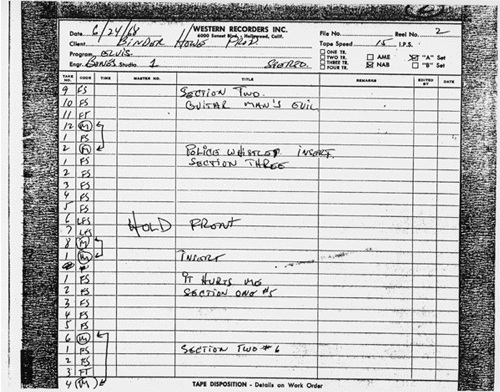 2
Date 6/24/68 WESTERN RECORDERS INC. File No. Reel No. 2
6000 Sunset Blvd., Hollywood, Calif.
Client BINDER HOWE PROD. Tape Speed 15 I.P.S.
Program ELVIS ONE TR.
TWO TR. AME "A" Set
Engr. BONES Studio 1 STEREO THREE TR. NAB "B" Set
FOUR TR.
TAKE NO. CODE TIME MASTER NO. TITLE REMARKS EDITED BY DATE
9 FS SECTION TWO.
10 FS GUITAR MAN'S EVIL
11 FT
12 M
1 FS
2 M POLICE WHISTLE INSERT.
1 FS SECTION THREE
2 FS
3 FS
4 FS
5 FS
6 LFS HOLD FRONT
7 LFS
8 M
1 M INSERT
1 FS IT HURTS ME
2 FS SECTION ONE #5
3 FS
4 FS
5 FS
6 M
1 FS SECTION TWO #6
2 FS
3 FT
4 M TAPE DISPOSITION - Details on Work Order